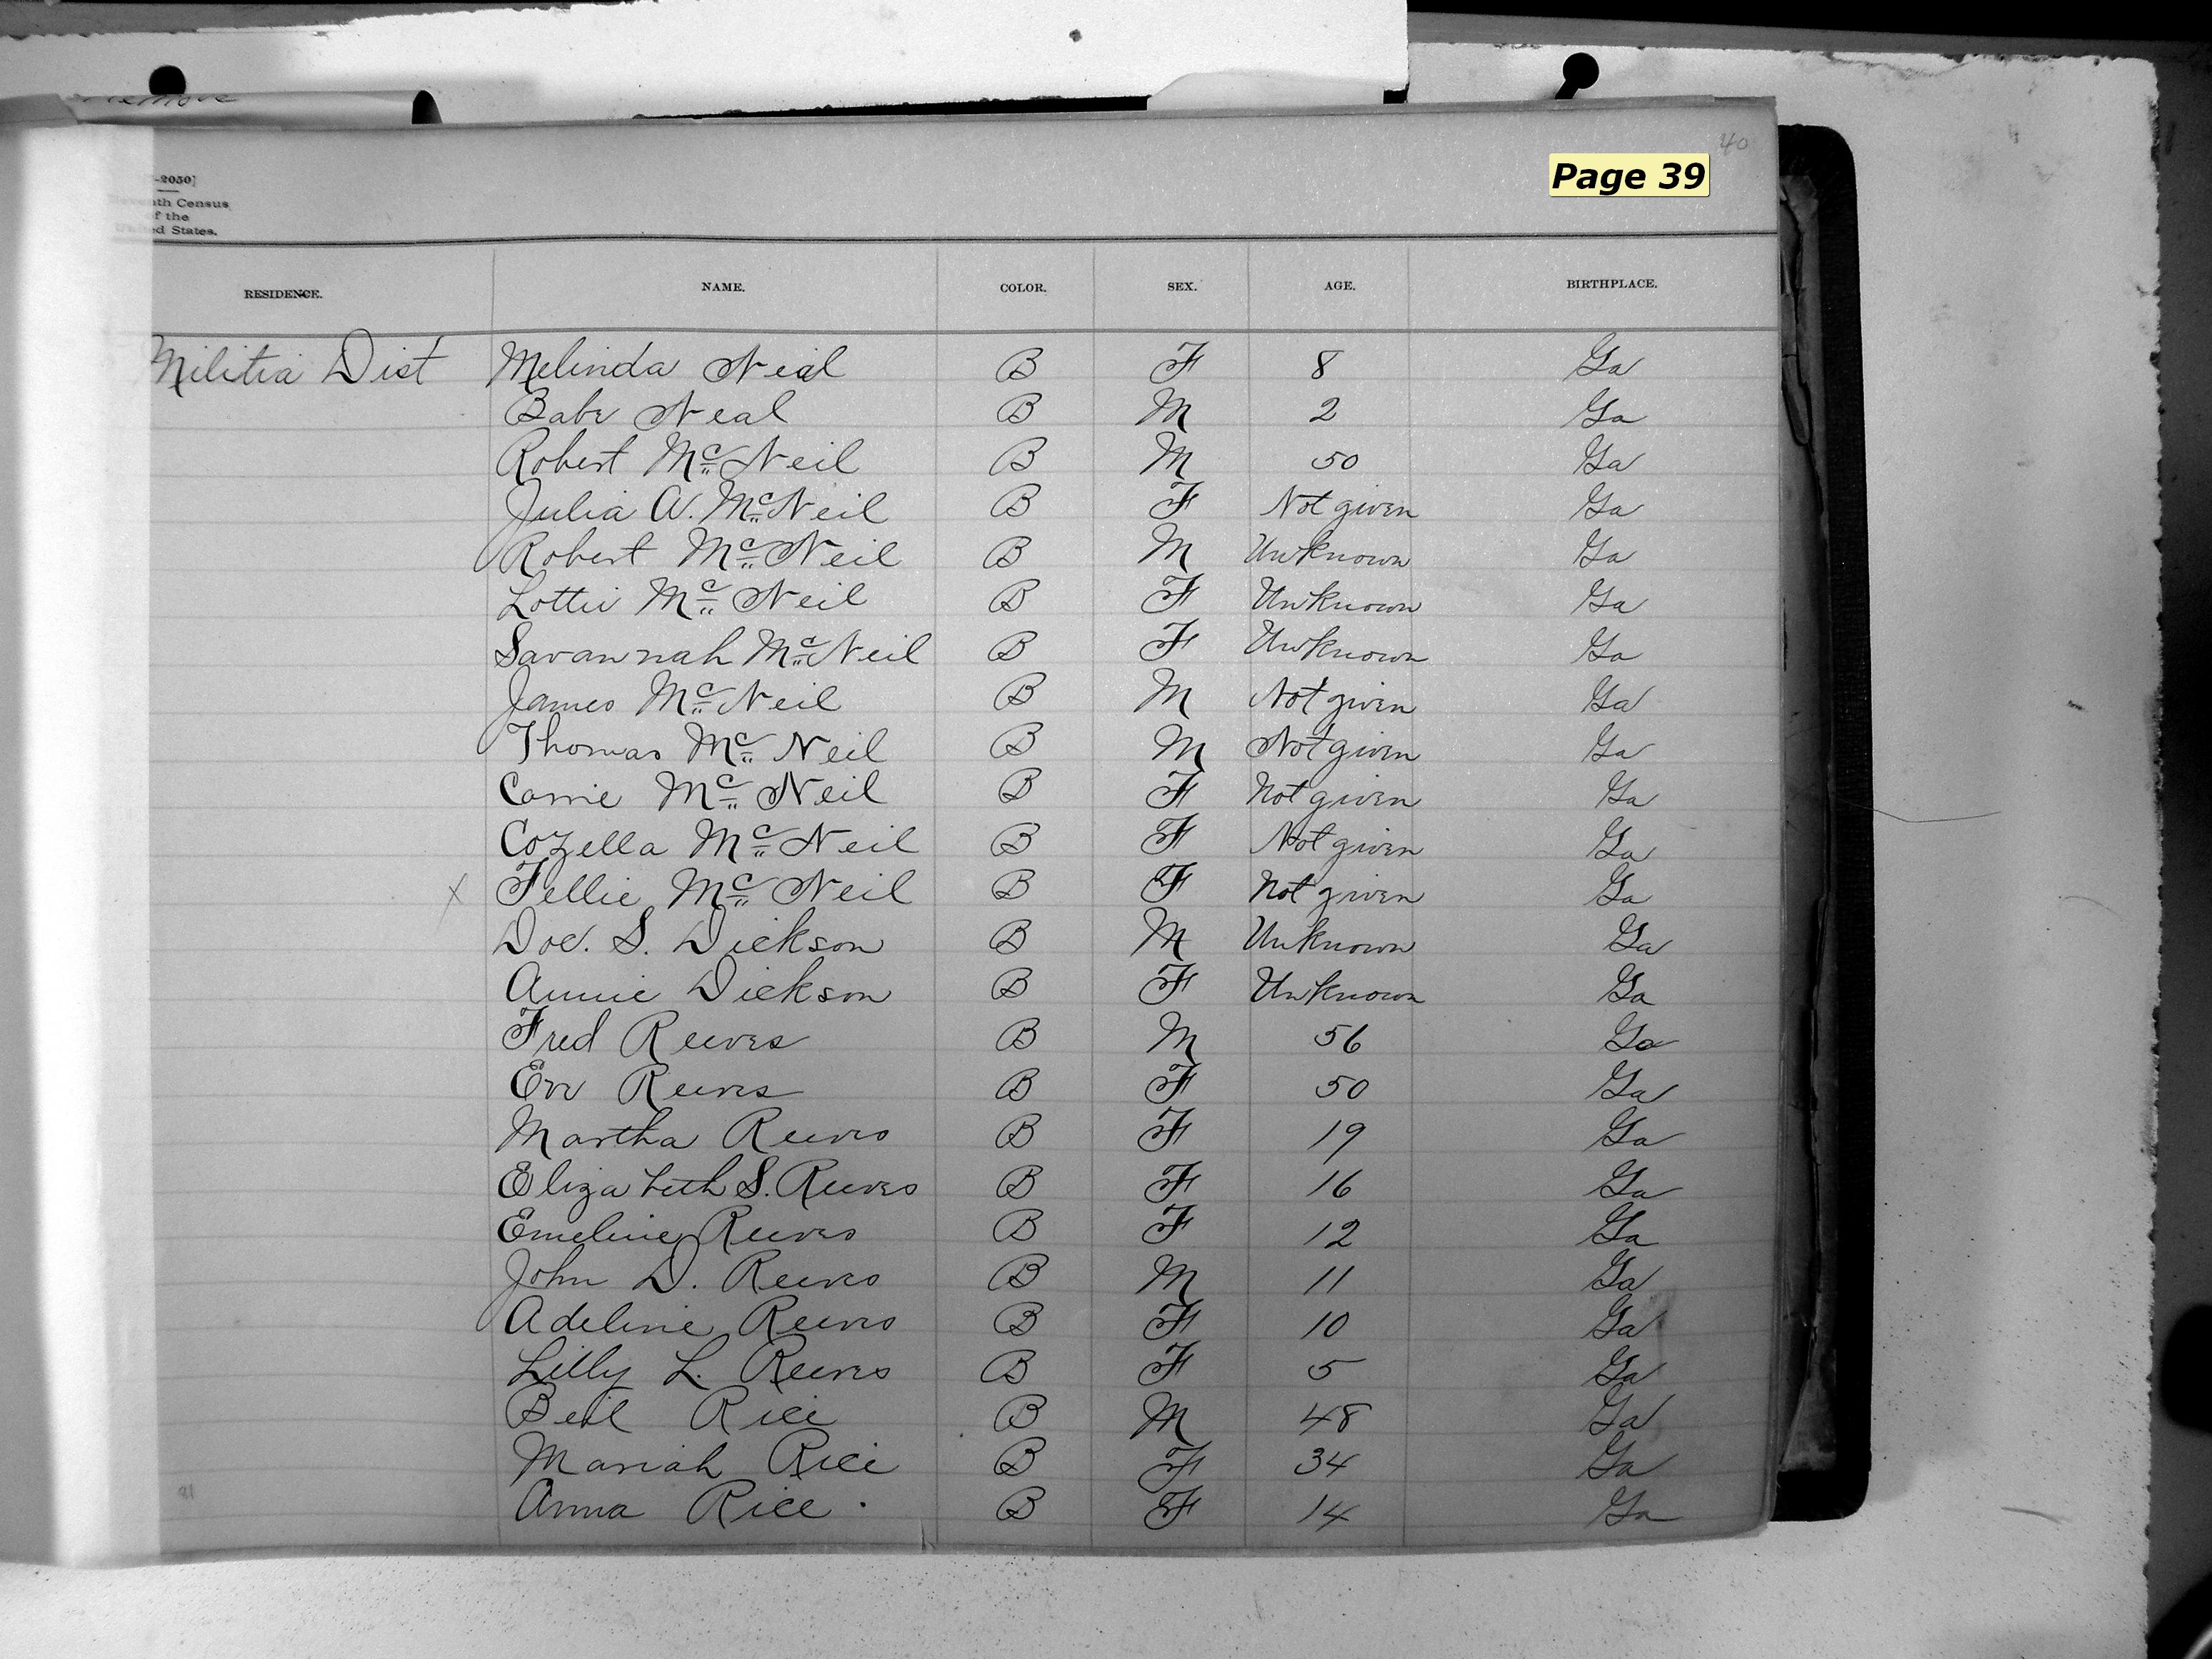 Remove
40
Page 39
-2050]
th Census
f the
ed States.
RESIDENCE. NAME. COLOR. SEX. AGE. BIRTHPLACE.
Militia Dist Melinda Neal B F 8 Ga
Babe Neal B M 2 Ga
Robert Mc Neil B M 50 Ga
Julia A. Mc Neil B F Not given Ga
Robert Mc Neil B M Unknown Ga
Lottie Mc Neil B F Unknown Ga
Savannah Mc Neil B F Unknown Ga
James Mc Neil B M Not given Ga
Thomas Mc Neil B M Not given Ga
Carrie Mc Neil B F Not given Ga
Cozella Mc Neil B F Not given Ga
x Fellie Mc Neil B F Not given Ga
Doc. S. Dickson B M Unknown Ga
Annie Dickson B F Unknown Ga
Fred Reeves B M 56 Ga
Eve Reeves B F 50 Ga
Martha Reeves B F 19 Ga
Elizabeth S. Reeves B F 16 Ga
Emeline Reeves B F 12 Ga
John D. Reeves B M 11 Ga
Adeline Reeves B F 10 Ga
Lilly L. Reeves B F 5 Ga
Rice B M 48 Ga
Mariah Rice B F 34 Ga
Anna Rice B F 14 Ga